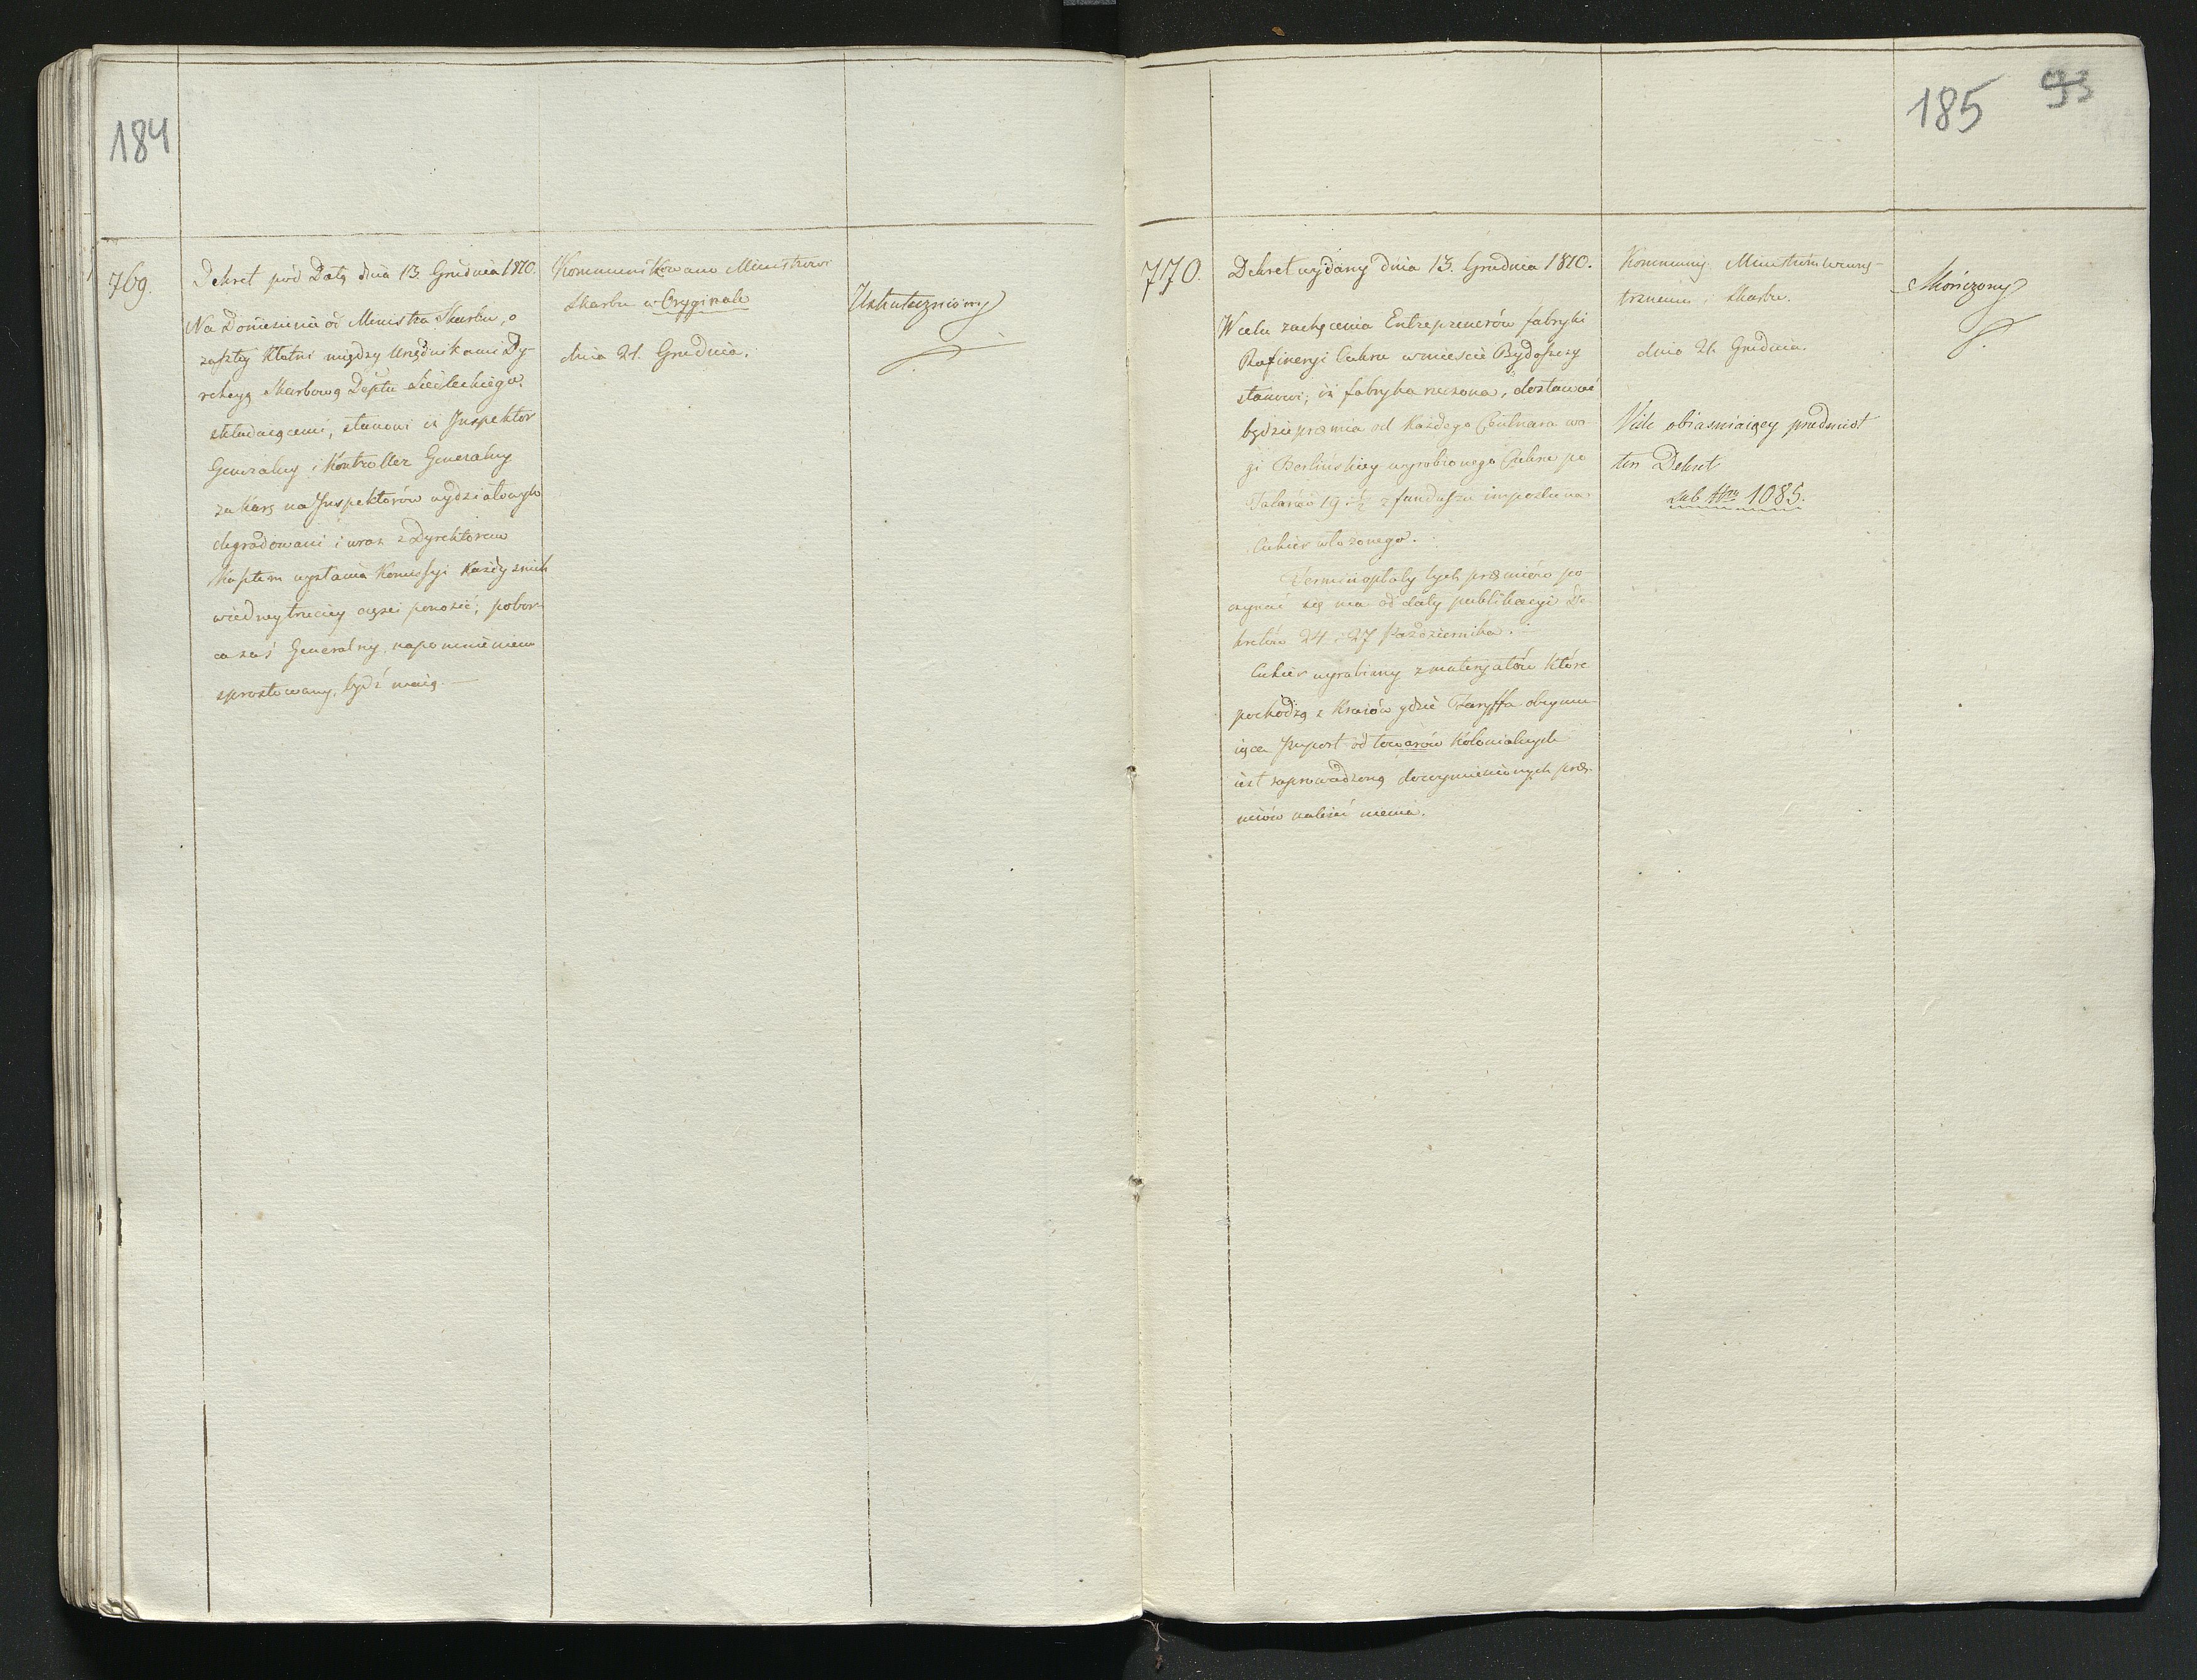 184
769.
Dekret pod Datą dnia 13. Grudnia 1810.
Na Doniesienie od Ministra Skarbu, o
zaszłey kłotni między Urzędnikami Dy-
rekcyą Skarbową Deptu Siedleckiego
składaiącemi, stanowi iż Inspektor
Generalny i Kontroller Generalny
za karę na Inspektorów wydziałowych
degradowani i wraz z Dyrektorem
koszta wysłania Komissyi każdy z nich
w iedney trzeciey części ponosić; pobor-
ca zaś Generalny napomnieniem
sprostowany, bydź maią.—
Kommunikowano Ministrowi
Skarbu w Oryginale
dnia 21. Grudnia.
Uskuteczniony
185 93
770.
Dekret wydany dnia 13. Grudnia 1810.
W celu zachęcenia Entreprenerów fabryki
Rafineryi Cukru w mieście Bydgoszczy
stanowi, iż fabryka rzeczona, dostawać
będzie præmia od każdego Centnara wa
gi Berlińskiey wyrobionego Cukru po
Talarów 19 1/2 z funduszu impostu na
Cukier włożonego.
Termin opłaty tych præmiów po
czynać się ma od daty publikacyi De
kretów 24 i 27 Października.
Cukier wyrabiany z materyałów które
pochodzą z Kraiów gdzie Taryffa obeymu-
iąca Impost od towarów Kolonialnych
iest zaprowadzoną do wymienionych præ-
miów należeć niema.
Kommunik. Ministrom Wewnę-
trznemu i Skarbu.
dnia 21. Grudnia.
Vide obiaśniaiący przedmiot
ten Dekret
sub Nro 1085.
Skończony